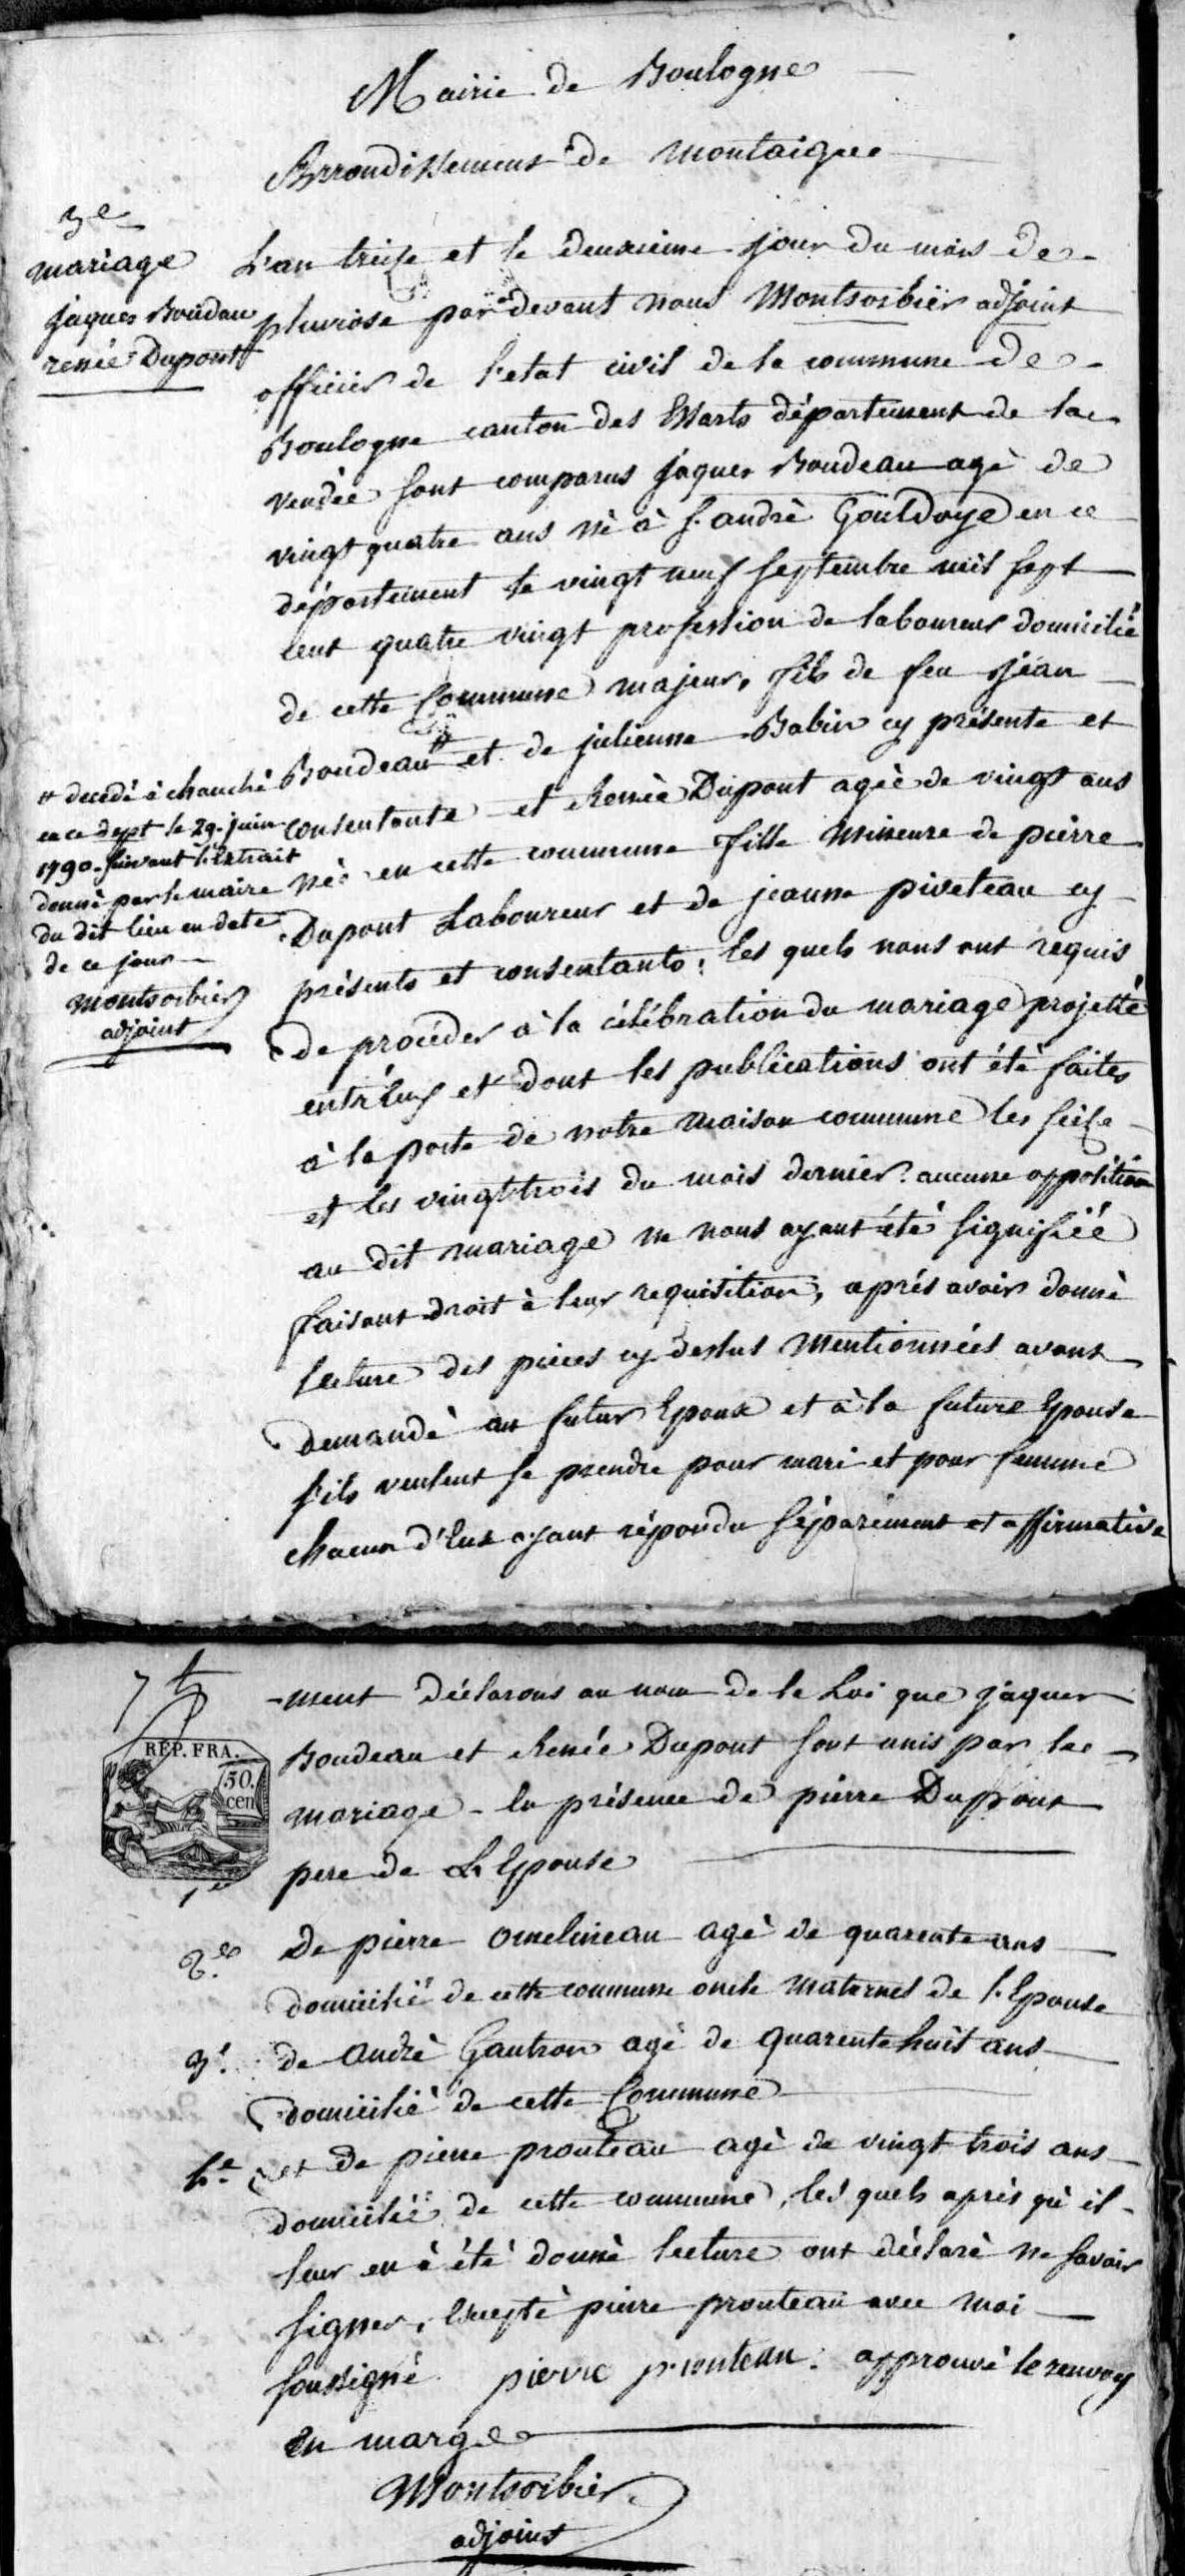 Mairie de Boulogne
Arrondissement de montaigue
3e
mariage
jaques Boudau
renée Dupont
L'an treise et le deuxieme jour du mois de
pluviose par devant nous Montsorbier adjoint
officier de l'etat civil de la commune de
Boulogne canton des Essarts département de la
vendée sont comparus jaques Boudeau agè de
vingt quatre ans nè à s. andrè Gouldoye en ce
département le vingt neuf septembre mil sept
cent quatre vingt profession de laboureur domicilié
de cette Commune majeur, fils de feu jean
Boudeau # et de julienne Babin cy présente et
consentante et Renèe Dupont agèe de vingt ans
nèe en cette commune fille mineure de pierre
Dupont Laboureur et de jeanne piveteau cy
présents et consentants; les quels nous ont requis
de procéder à la célébration du mariage projetté
entr'eux et dont les publications ont été faites
à la porte de notre maison commune les seise
et les vingt trois du mois dernier. aucune opposition
au dit mariage ne nous ayant été signifiée
faisant droit à leur requisition, aprés avoir donnè
lecture des pieces cy dessus mentionnées avons
demandè au futur Epoux et à la future Epouse
s'ils veulent se prendre pour mari et pour femme
chacun d'Eux ayant répondu séparément et affirmative
# decedé à chauché
en ce dept le 29. juin
1790. suivant l'extrait
donné par le maire
du dit lieu en date
de ce jour
Montsorbier
adjoint
7
REP. FRA.
50.
cen
-ment déclarons au nom de la Loi que jaques
Boudeau et Renée Dupont sont unis par le
mariage - en présence de pierre Dupont
1er
pere de L'Epouse
2e
de pierre Omelineau agè de quarente ans
domicilié de cette commune oncle maternel de l'Epouse
3e
de Andrè Gautron agè de quarente huit ans
domicilié de cette Commune
4e
et de pierre prouteau agè de vingt trois ans
domicilié de cette commune, les quels après qu'il
leur en à été donnè lecture ont déclarè ne savoir
signer, Excepté pierre prouteau avec moi
soussigné pierre prouteau. approuvé le renvoy
en marge
Montsorbier
adjoint